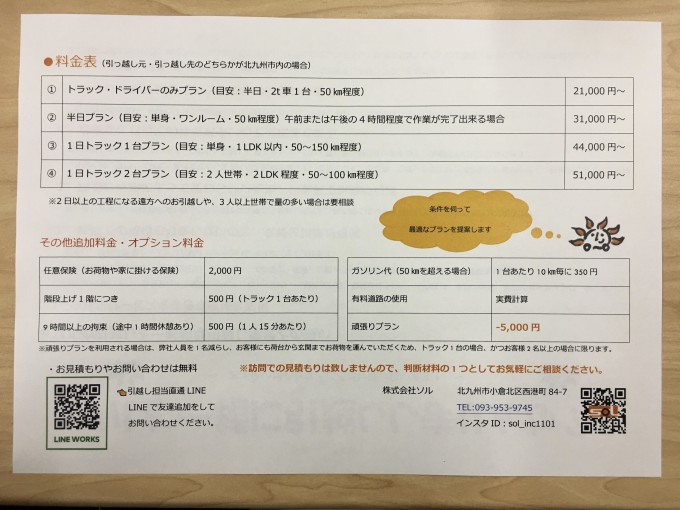 ●料金表（引っ越し元・引っ越し先のどちらかが北九州市内の場合）
① トラック・ドライバーのみプラン（目安：半日・2t 車 1 台・50 ㎞程度） 21,000 円～
② 半日プラン（目安：単身・ワンルーム・50 ㎞程度）午前または午後の 4 時間程度で作業が完了出来る場合 31,000 円～
③ 1 日トラック 1 台プラン（目安：単身・1LDK 以内・50～150 ㎞程度） 44,000 円～
④ 1 日トラック 2 台プラン（目安：2 人世帯・2LDK 程度・50～100 ㎞程度） 51,000 円～
※2 日以上の工程になる遠方へのお引越しや、3 人以上世帯で量の多い場合は要相談
条件を伺って
最適なプランを提案します
その他追加料金・オプション料金
任意保険（お荷物や家に掛ける保険） 2,000 円
階段上げ 1 階につき 500 円（トラック 1 台あたり）
9 時間以上の拘束（途中 1 時間休憩あり） 500 円（1 人 15 分あたり）
ガソリン代（50 ㎞を超える場合） 1 台あたり 10 ㎞毎に 350 円
有料道路の使用 実費計算
頑張りプラン -5,000 円
※頑張りプランを利用される場合は、弊社人員を 1 名減らし、お客様にも荷台から玄関までお荷物を運んでいただくため、トラック 1 台の場合、かつお客様 2 名以上の場合に限ります。
・お見積もりやお問い合わせは無料
※訪問での見積もりは致しませんので、判断材料の 1 つとしてお気軽にご相談ください。
引越し担当直通 LINE
LINE で友達追加をして
お問い合わせください。
LINE WORKS
株式会社ソル 北九州市小倉北区西港町 84-7
TEL:093-953-9745
インスタ ID：sol_inc1101
sol